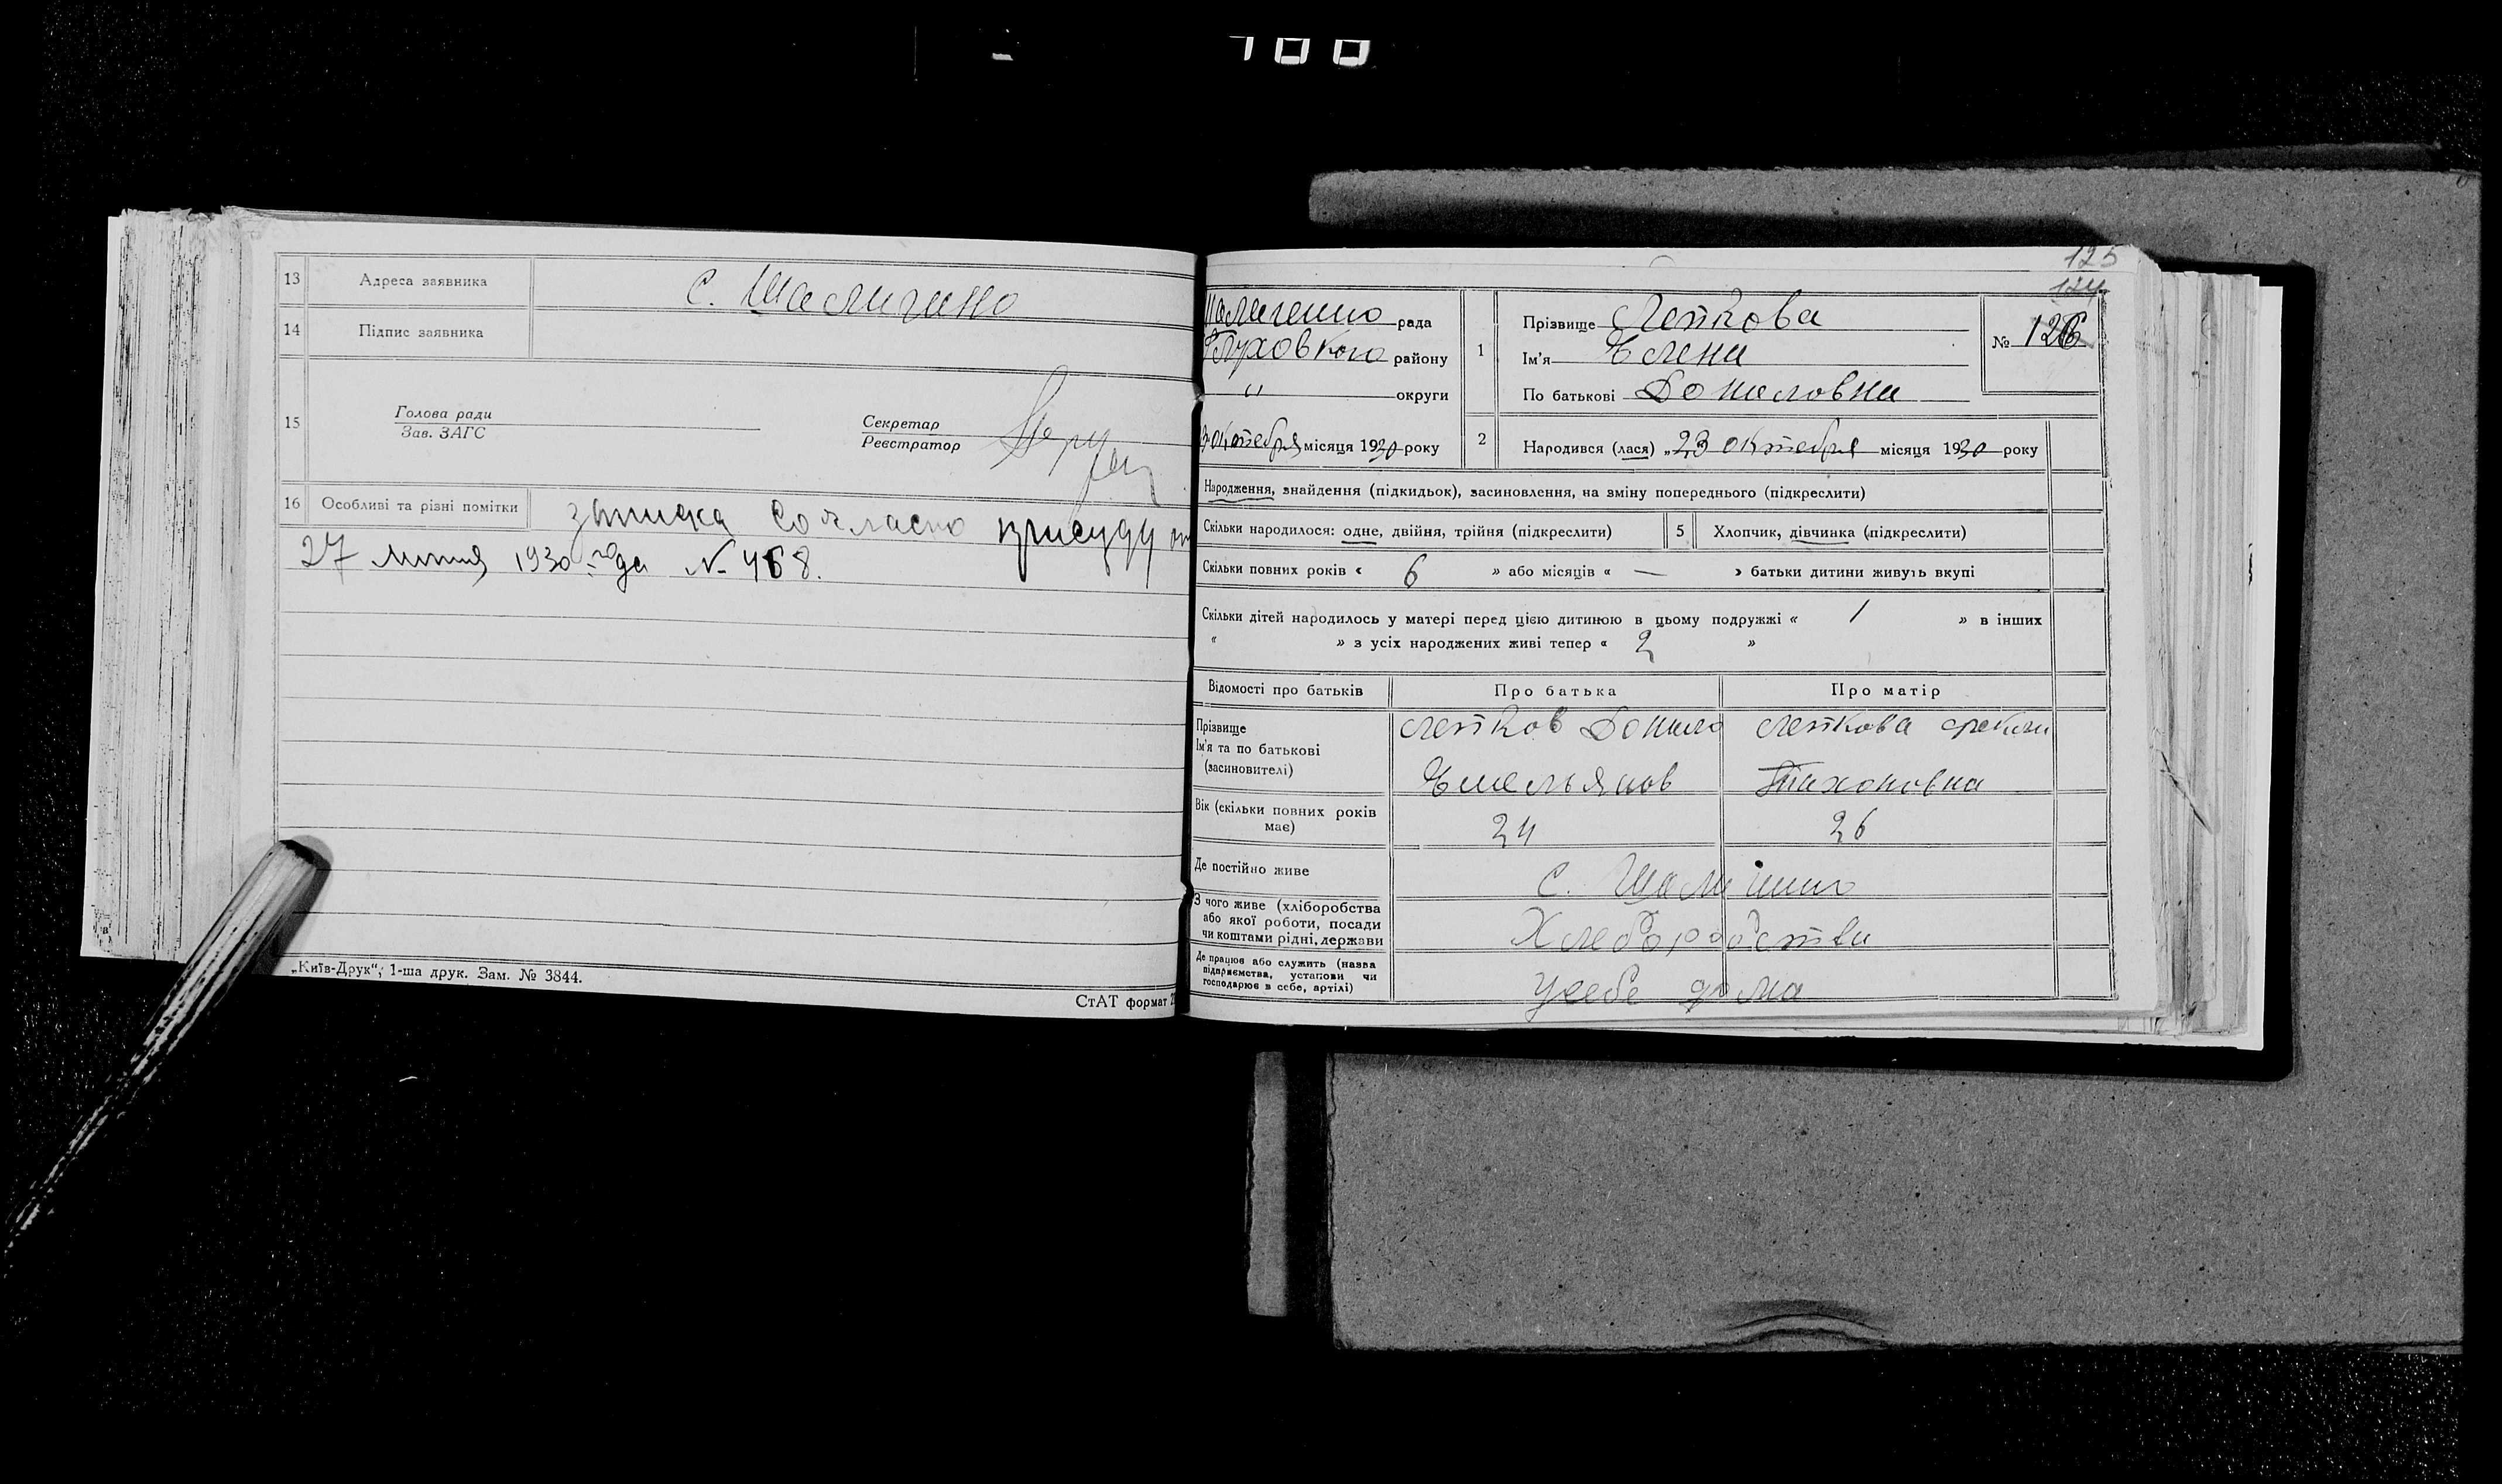 100
13 Адреса заявника с. Шалигино
14 Підпис заявника
15 Голова ради
Зав. ЗАГС
Секретар
Реєстратор
16 Особливі та різні помітки согласно присуду
27 липня 1930 года N 468.
„Київ-Друк“, 1-ша друк. Зам. № 3844.
СтАТ формат
125
124
рада
Глуховкого району
" округи
октебря місяця 1930 року
1 Прізвище Леткова
Ім'я Елена
По батькові Даниловна
№ 126
2 Народився (лася) „23 октебря місяця 1930 року
Народження, знайдення (підкидьок), засиновлення, на зміну попереднього (підкреслити)
Скільки народилося: одне, двійня, трійня (підкреслити) 5 Хлопчик, дівчинка (підкреслити)
Скільки повних років « 6 » або місяців « — » батьки дитини живуть вкупі
Скільки дітей народилось у матері перед цією дитиною в цьому подружжі « 1 » в інших
« » з усіх народжених живі тепер « 2 »
Відомості про батьків Про батька Про матір
Прізвище
Ім'я та по батькові
(засиновителі)
Летков Данило
Емельянов
Леткова
Тихоновна
Вік (скільки повних років
має) 24 26
Де постійно живе с. Шалигино
З чого живе (хліборобства
або якої роботи, посади
чи коштами рідні, держави
Хлеборобства
Де працює або служить (назва
підприємства, установи чи
господарює в себе, артілі)
у себе дома